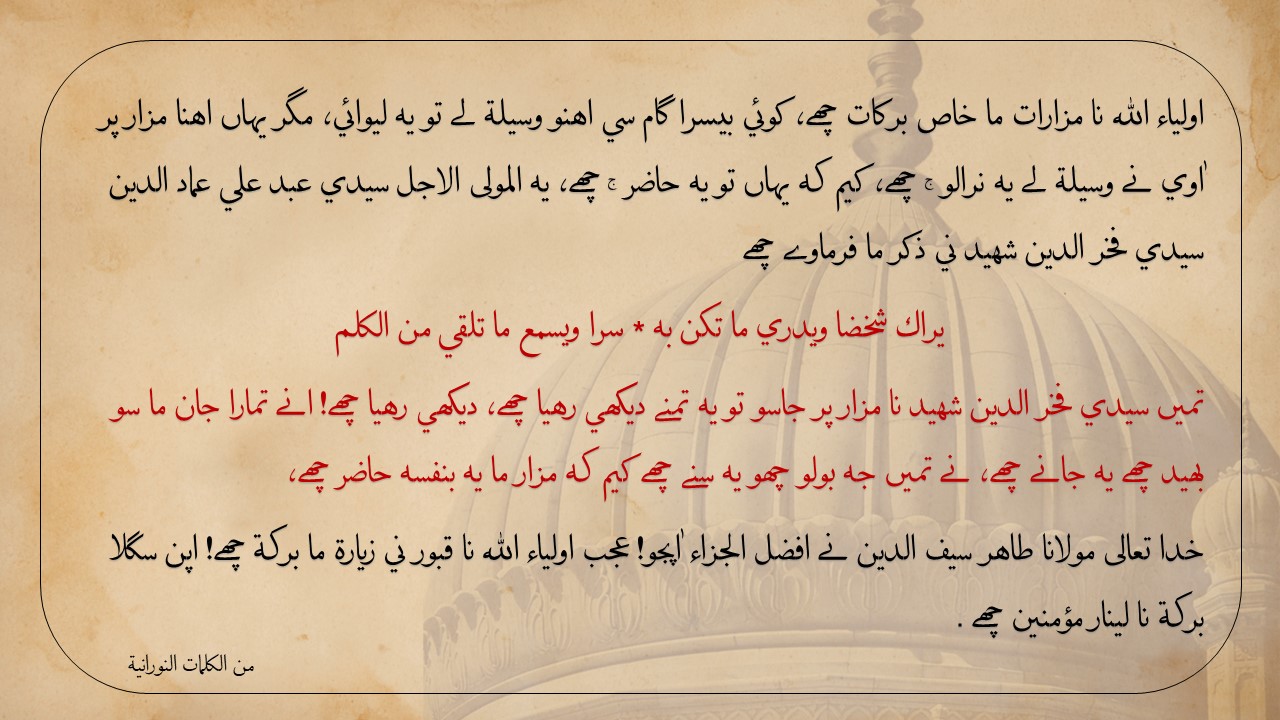 اولياء الله نا مزارات ما خاص بركات چھے، كوئي بيسرا گام سي اهنو وسيلة لے تو يه ليوائي، مگر يہاں اهنا مزار پر
اٰوي نے وسيلة لے يه نرالو ج چھے، كيم كہ يہاں تو يه حاضر ج چھے، يه المولى الاجل سيدي عبد علي عماد الدين
سيدي فخر الدين شهيد ني ذكر ما فرماوے چھے
يراك شخضا ويدري ما تكن به * سرا ويسمع ما تلقي من الكلم
تميں سيدي فخر الدين شهيد نا مزار پر جاسو تو يه تمنے ديكھي رهيا چھے، ديكھي رهيا چھے! انے تمارا جان ما سو
بھيد چھے يه جانے چھے، نے تميں جه بولو چھو يه سنے چھے كيم كہ مزار ما يه بنفسه حاضر چھے،
خدا تعالى مولانا طاهر سيف الدين نے افضل الجزاء اٰپجو! عجب اولياء الله نا قبور ني زيارة ما بركة چھے! اپن سگلا
بركة نا لينار مؤمنين چھے .
من الكلمات النورانية